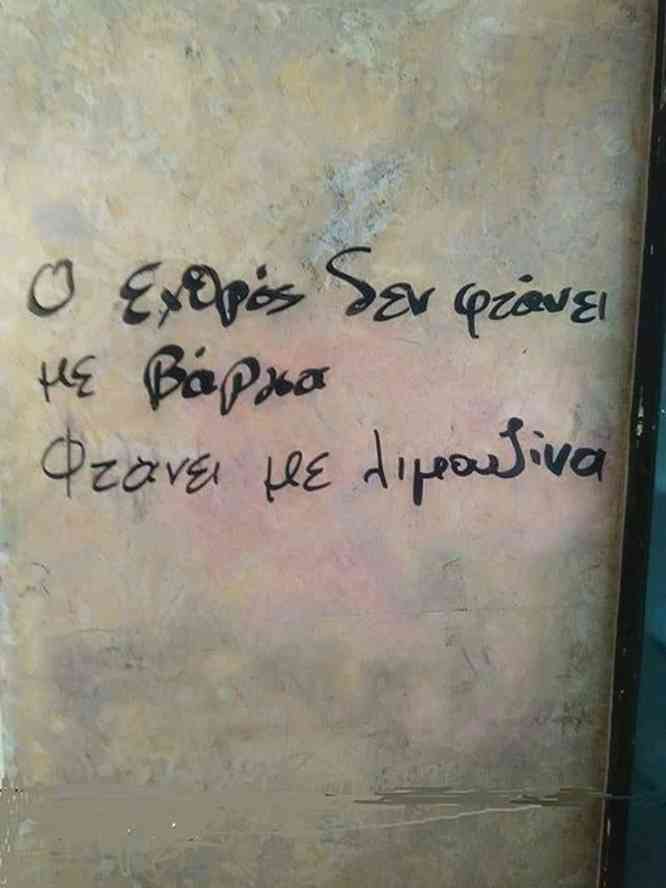 Ο εχθρός δεν φτάνει
με βάρκα
Φτανει με λιμουζίνα